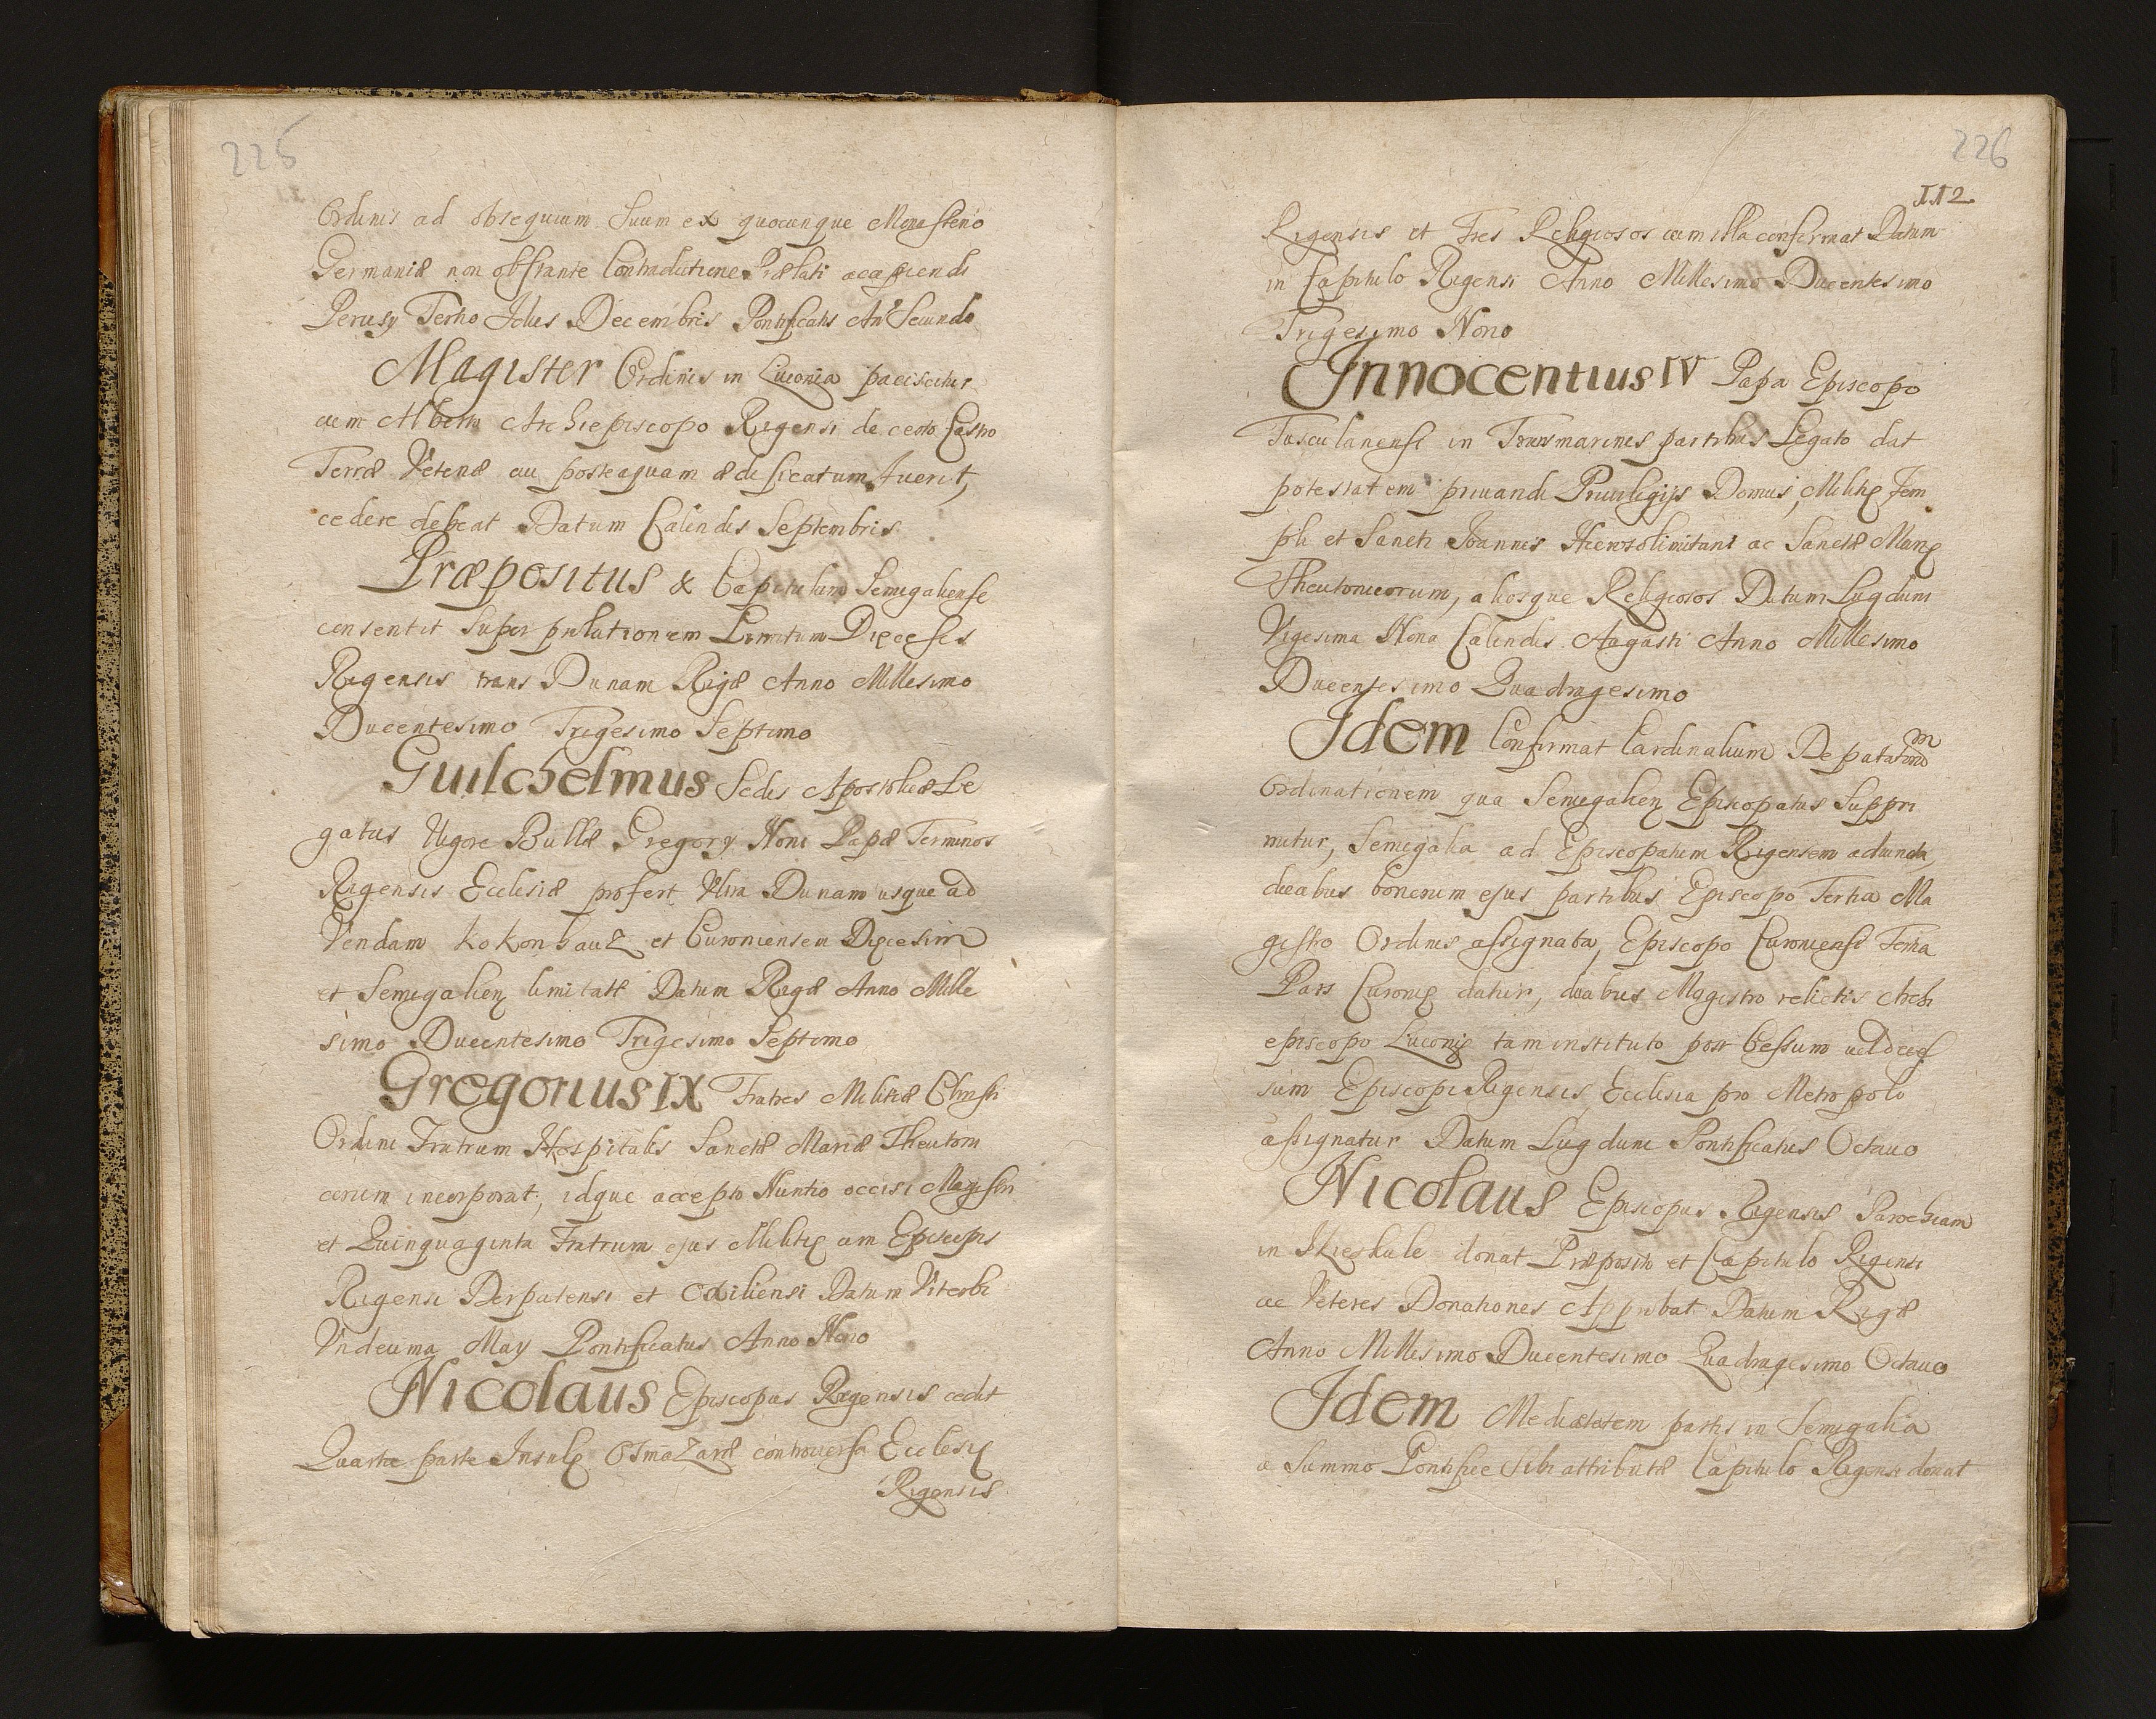 225
Ordinis ad obsequium suum ex quocunque Monasterio
Germaniæ non obstante Contradictione Prælati accipiendi
Perusy Tertio Idus Decembris Pontificatis An° Secundo
Magister Ordinis in Liuonia paciscitur
cum Alberto Archiepiscopo Rigensi de certo Castro
Terræ Vetenæ cui posteaquam ædificatum fuerit,
cedere debeat Datum Calendis Septembris
Præpositus & Capitulum Semigaliense
consentit super prolationem Limitum Diecesis
Rigensis trans Dunam Rigæ Anno Millesimo
Ducentesimo Trigesimo Septimo
Guilchelmus Sedis Apostolicæ Le
gatus Vigore Bullæ Gregory Noni Papæ Terminos
Rigensis Ecclesiæ profert Vltra Dunam usque ad
Vendam Kokonhauz et Curoniensem Diecesim
et Semigalien limitatæ Datum Rigæ Anno Mille
simo Ducentesimo Trigesimo Septimo
Gregorius IX Fratres Militiæ Christi
Ordini Fratrum Hospitalis Sanctæ Mariæ Theutoni
corum incorporat, idque accepto Nuntio occisi Magistri
et Quinquaginta Fratrum ejus Militię cum Episcopis
Rigensi Derpatensi et Osiliensi Datum Viterbi
Vndecima May Pontificatus Anno Nono
Nicolaus Episcopus Rigensis cedit
Quarta parte Insulę Osmazaræ controuersa Ecclesię
Rigensis
226
112
Rigensis et Tres Religiosos cum illa confirmat Datum
in Capitulo Rigensi Anno Millesimo Ducentesimo
Trigesimo Nono
Innocentius IV Papa Episcopo
Tusculanensi in Transmarinis partibus Legato dat
potestatem priuandi Priuilegijs Domus, Militię Tem
pli et Sancti Joannis Hierosolimitani ac Sanctæ Marię
Theutonicorum, aliosque Religiosos Datum Lugduni
Vigesima Nona Calendis Augusti Anno Millesimo
Ducentesimo Quadragesimo
Idem Confirmat Cardinalium Deputatorum
Ordinationem qua Semigalien Episcopatus Suppri
mitur, Semigalia ad Episcopatum Rigensem adiuncta,
duabus bonorum ejus partibus Episcopo Tertia Ma
gistro Ordinis assignata, Episcopo Curoniensi Tertia
Pars Curonię datur, duabus Magistro relictis Archi
episcopo Liuonię tam instituto post Cessum vel deces
sum Episcopi Rigensis, Ecclesia pro Metropolo
assignatur Datum Lugduni Pontificatus Octauo
Nicolaus Episcopus Rigensis Parochiam
in Ikeskule donat Præposito et Capitulo Rigensi
ac Veteres Donationes Approbat Datum Rigæ
Anno Millesimo Ducentesimo Quadragesimo Octauo
Idem Mediætatem partis in Semigalia
a Summo Pontifice sibi attributæ Capitulo Rigensi donat